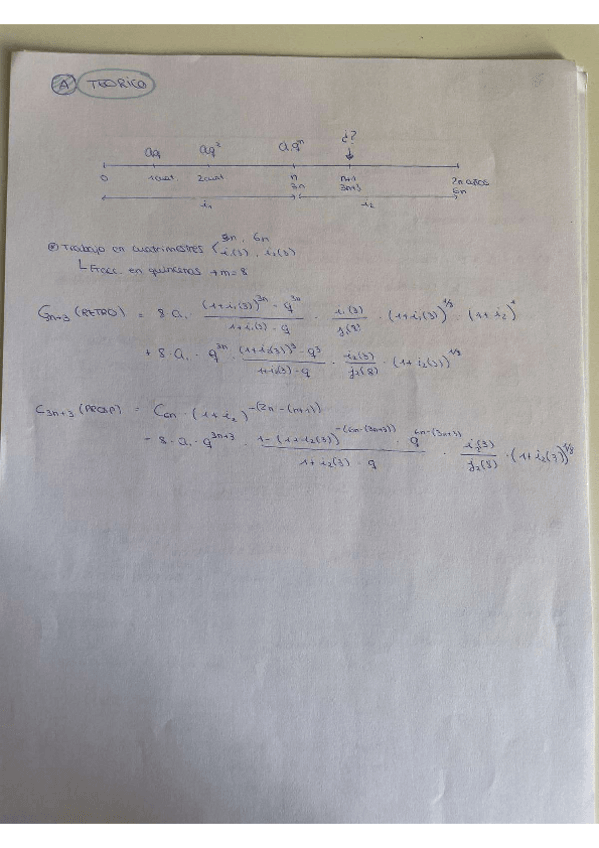 A TEORICO
aq aq² a.qⁿ ¿?
0 1cuat 2cuat n n+1 2n años
3n 3n+3 6n
i₁ i₂
Trabajo en cuatrimestres 3n, 6n
i₁(3), i₂(3)
Fracc. en quincenas → m=8
C₃ₙ₊₃ (RETRO) = 8·a· ((1+i₁(3))³ⁿ - q³ⁿ)/(1+i₁(3) - q) · i₁(3)/j₁(8) · (1+i₁(3))^(1/8) · (1+i₂)¹
+ 8·a· q³ⁿ · ((1+i₂(3))³ - q³)/(1+i₂(3) - q) · i₂(3)/j₂(8) · (1+i₂(3))^(1/8)
C₃ₙ₊₃ (PROSP) = C₆ₙ · (1+i₂)^(-(2n-(n+1)))
- 8·a· q³ⁿ⁺³ · (1-(1+i₂(3))^(-(6n-(3n+3))) · q^(6n-(3n+3)))/(1+i₂(3) - q) · i₂(3)/j₂(8) · (1+i₂(3))^(1/8)